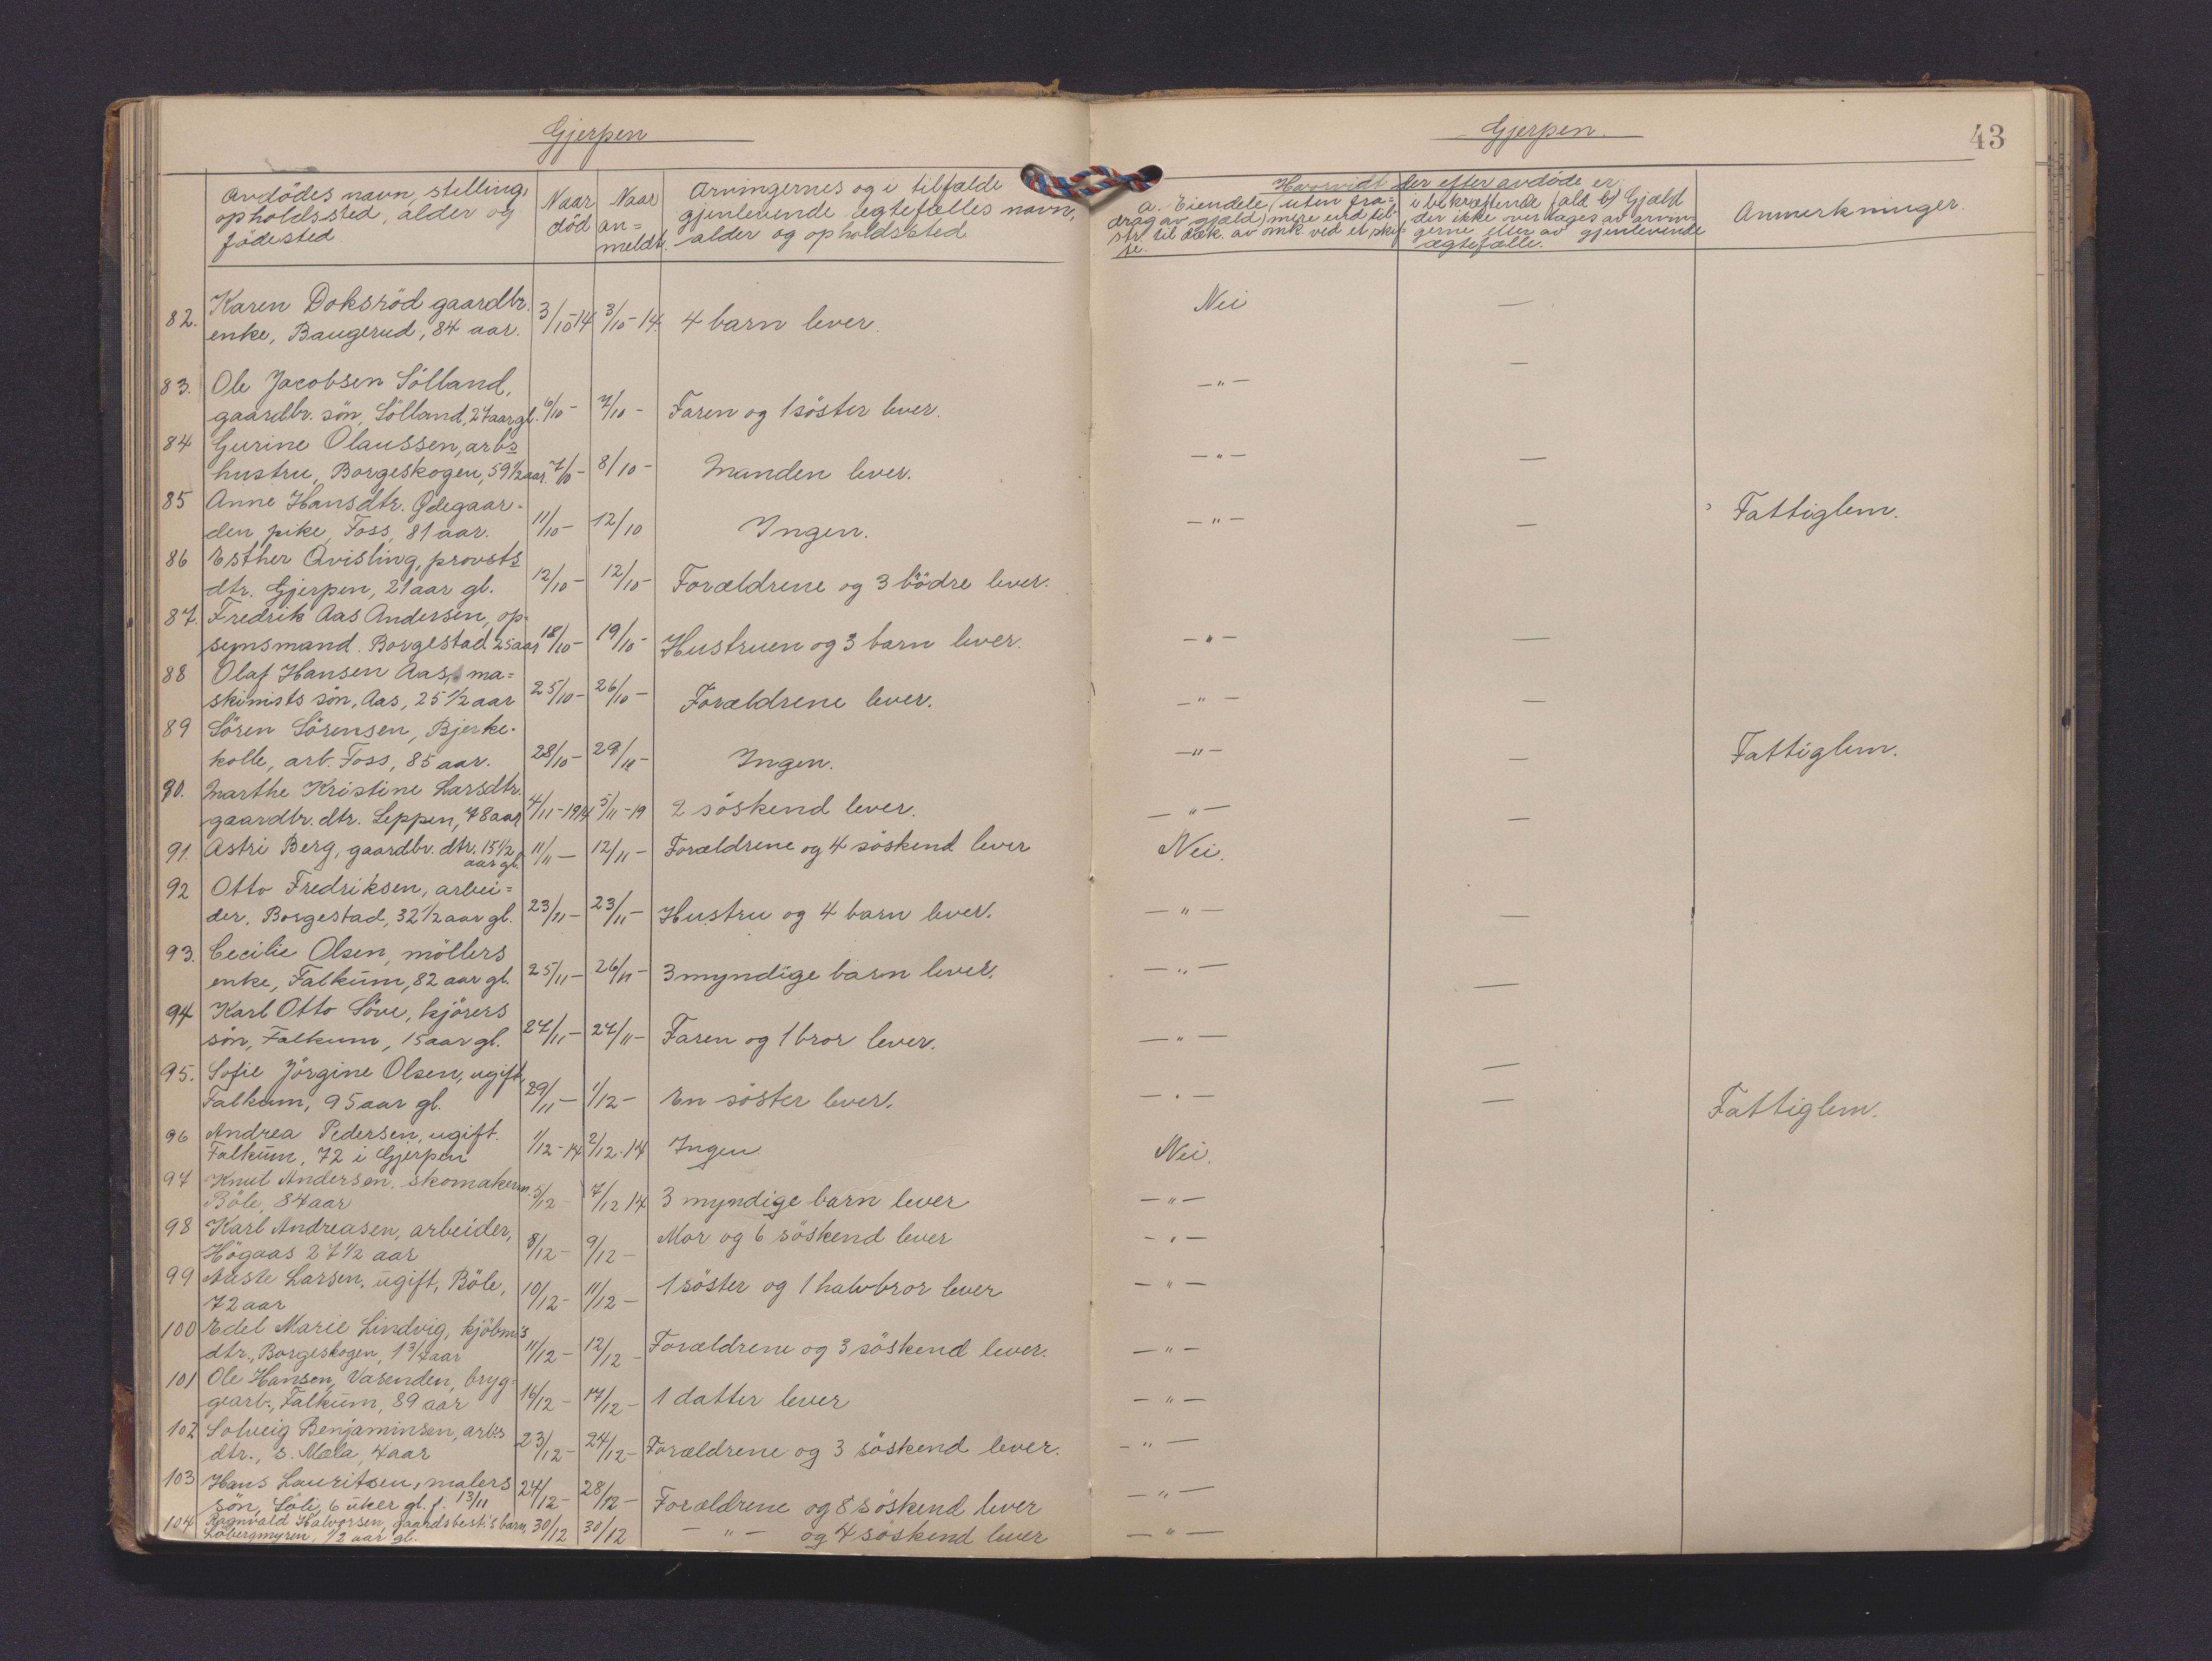 Gjerpen
Avdödes navn, stilling,
opholdssted, alder og
födested
Naar
död
Naar
an=
meldt.
Arvingernes og i tilfælde
gjenlevende ægtefælles navn,
alder og opholdssted
82. Karen Doksröd gaardbr.
enke, Baugerud, 84 aar. 3/10-14 3/10-14. 4 barn lever.
83. Ole Jacobsen Sölland,
gaardbr. sön, Sölland, 27 aar gl. 6/10- 7/10- Faren og 1 söster lever.
84 Gurine Olaussen, arbs
hustru, Borgeskogen, 59 1/2 aar. 7/10- 8/10- Manden lever.
85 Anne Hansdtr. Ødegaar-
den pike, Foss, 81 aar. 11/10- 12/10 Ingen.
86 Esther Qvisling, provsts
dtr. Gjerpen, 21 aar gl. 12/10- 12/10- Forældrene og 3 brödre lever.
87. Fredrik Aas Andersen, op-
synsmand. Borgestad 25 aar 18/10- 19/10- Hustruen og 3 barn lever.
88 Olaf Hansen Aas, ma=
skinists sön, Aas, 25 1/2 aar 25/10- 26/10- Forældrene lever.
89 Sören Sörensen, Bjerke-
kolle, arb. Foss, 85 aar. 28/10- 29/10- Ingen.
90. Marthe Kristine Larsdtr.
gaardbr. dtr. Leppen, 78 aar 4/11-1914 5/11-19 2 söskend lever.
91. Astri Berg, gaardbr. dtr. 15 1/2
aar gl. 11/11- 12/11- Forældrene og 4 söskend lever
92 Otto Fredriksen, arbei=
der, Borgestad, 32 1/2 aar gl. 23/11- 23/11- Hustru og 4 barn lever.
93. Cecilie Olsen, möllers
enke, Falkum, 82 aar gl. 25/11- 26/11- 3 myndige barn lever.
94 Karl Otto Söve, kjörers
sön, Falkum, 15 aar gl. 27/11- 27/11- Faren og 1 bror lever.
95. Sofie Jörgine Olsen, ugift,
Falkum, 95 aar gl. 29/11- 1/12- En söster lever.
96 Andrea Pedersen, ugift.
Falkum, 72 i Gjerpen 1/12-14 2/12-14 Ingen
97 Knut Andersen, skomakerm.
Böle, 84 aar 5/12- 7/12 14 3 myndige barn lever
98 Karl Andreasen, arbeider,
Högaas 27 1/2 aar 8/12- 9/12- Mor og 6 söskend lever
99 Aaste Larsen, ugift, Böle,
72 aar 10/12- 11/12- 1 söster og 1 halvbror lever
100 Edel Marie Lindvig, kjöbm's
dtr., Borgeskogen, 1 3/4 aar 11/12- 12/12- Forældrene og 3 söskend lever.
101 Ole Hansen, Varenden, bryg=
gearb., Falkum, 89 aar 16/12- 17/12- 1 datter lever
102 Solveig Benjaminsen, arb:s
dtr., s. Mæla, 4 aar 23/12- 24/12- Forældrene og 3 söskend lever.
103 Hans Lauritsen, malers
sön, Böle, 6 uker gl. f. 13/11 24/12- 28/12- Forældrene og 8 söskend lever
104 Ragnvald Halvorsen, gaardsbest.'s barn,
Löbergmyren, 1/2 aar gl. 30/12 30/12 - " - og 4 söskend lever
Gjerpen.
43
Hvorvidt der efter avdöde er:
a. Eiendele (uten fra-
drag av gjæld) mere end til-
str. til dæk. av omk. ved et skif-
te.
i bekræftende fald b) Gjæld
der ikke overtages av arvin-
gerne eller av gjenlevende
ægtefælle.
Anmerkninger.
Nei —
— " — —
— " — —
— " — — Fattiglem.
— " — —
— " — —
— " — — Fattiglem.
— " — —
Nei.
— " — —
— " — —
— " — —
— " — — Fattiglem.
Nei.
— " —
— " —
— " —
— " —
— " —
— " —
— " —
— " —